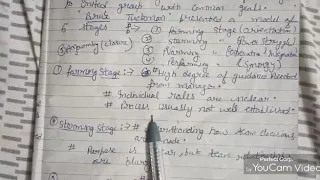 to united group with common goals.
"Bruce Tuckman" presented a model of
5 stages ① Forming Stage (orientation)
② Storming (Power Struggle)
⑤ Adjourning (Closure) ③ Norming (Cooperation/Integration)
④ Performing (Synergy)
① Forming Stage:→ # High degree of guidance needed
from manager.
# Individual roles are unclear.
# Process usually not well established.
② Storming Stage:→ # Understanding how team decisions
are made.
# Purpose is clear but team relationships
are blurry.
Perfect Corp.
YouCam Video